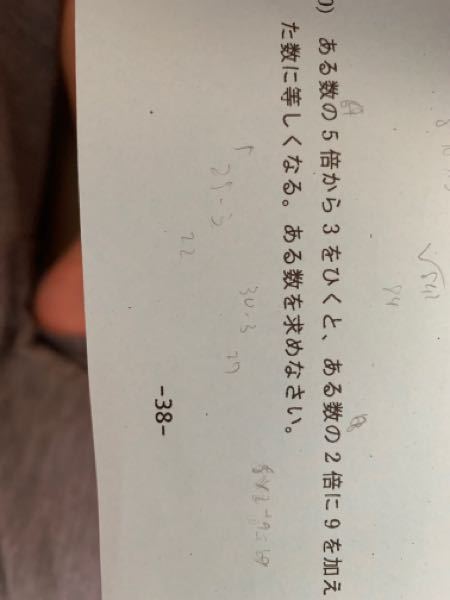 ある数の5倍から3をひくと、ある数の2倍に9を加え
た数に等しくなる。ある数を求めなさい。
25-3
22
30-3
27
√541
84
-38-